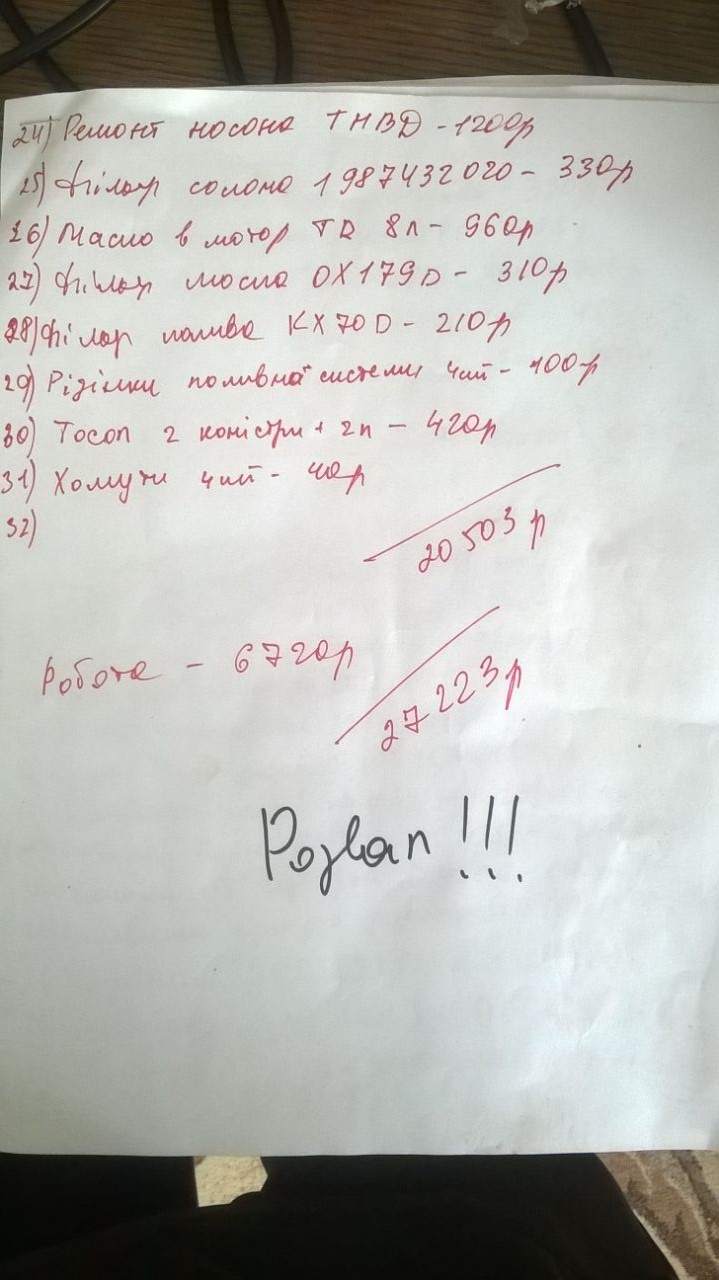 24) Ремонт насоса ТНВД - 1200р
25) Фільтр салона 1987432020 - 330р
26) Масло в мотор TD 8л - 960р
27) Фільтр масла OX179D - 310р
28) Фільтр палива KX70D - 210р
29) паливної системи 4шт - 100р
30) Тосол 2 каністри + 2л - 420р
31) Хомути 4шт - 40р
32)
20503р
Робота - 6720р
27223р
Розвал !!!